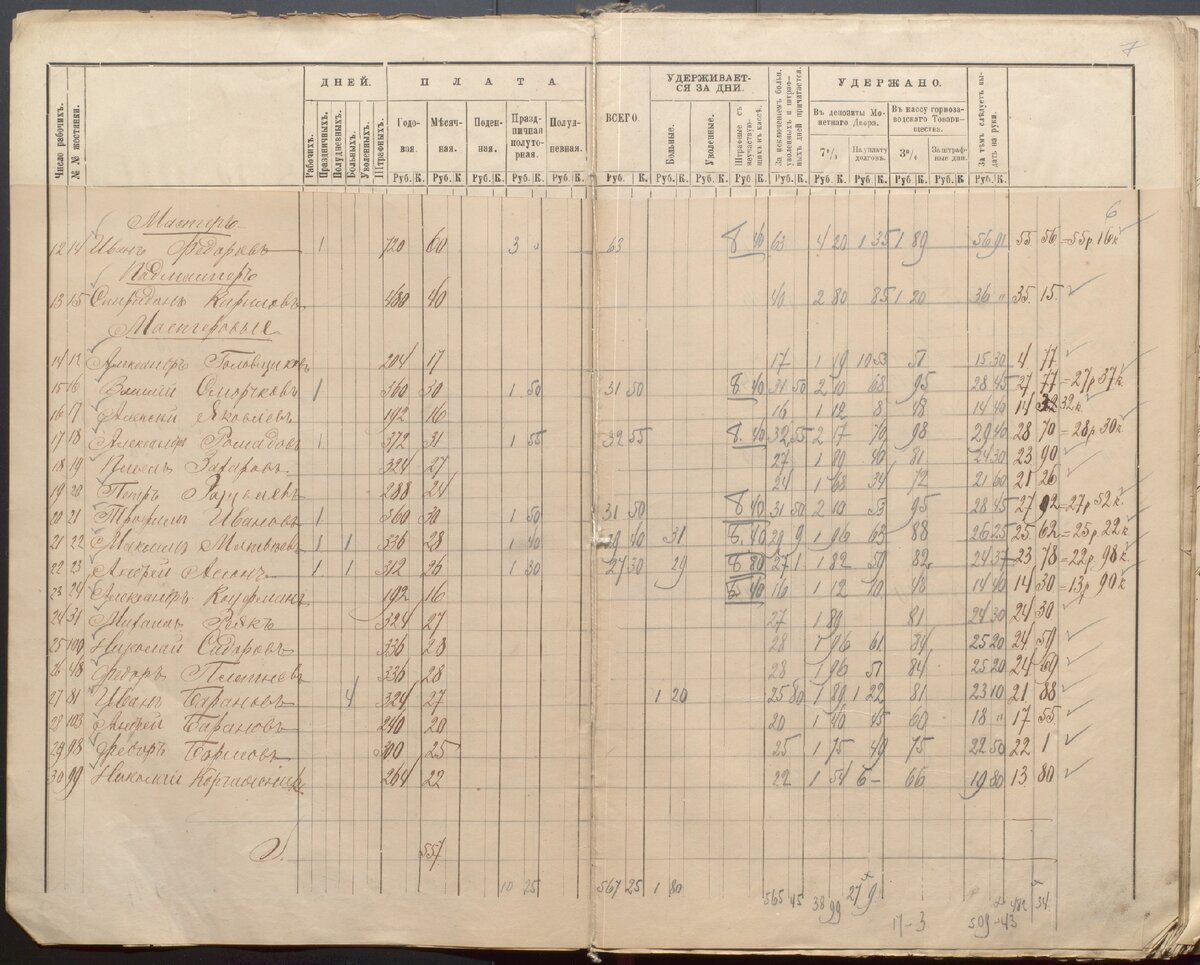 7
Число рабочихъ.
№ № жестянки.
ДНЕЙ.
Рабочихъ.
Праздничныхъ.
Полудневныхъ.
Больныхъ.
Уволенныхъ.
Штрафныхъ.
ПЛАТА
Годовая.
Мѣсячная.
Поденная.
Праздничная полуторная.
Полудневная.
ВСЕГО.
УДЕРЖИВАЕТСЯ ЗА ДНИ.
Больные.
Уволенные.
Штрафные съ неучаствующихъ въ кассѣ.
За исключеніемъ больн. уволенныхъ и штрафныхъ дней причитается.
УДЕРЖАНО.
Въ депозиты Монетнаго Двора.
7%
На уплату долговъ.
Въ кассу горнозаводскаго Товарищества.
3%
За штрафные дни.
За тѣмъ слѣдуетъ выдать на руки.
Руб. К. Руб. К. Руб. К. Руб. К. Руб. К. Руб. К. Руб. К. Руб. К. Руб. К. Руб. К. Руб. К. Руб. К. Руб. К. Руб. К. Руб. К.
6
Мастеръ
12 14 Иванъ Федоровъ 1 720 60 3 „ 63 8 40 63 4 20 1 35 1 89 56 91 55 56 =55р.16к
Подмастеръ
13 15 Спиридонъ Кириловъ 480 40 40 2 80 85 1 20 36 „ 35 15
Мастеровые
14 12 Александръ 204 17 17 1 19 10 53 51 15 30 4 77
15 16 Сморчковъ 1 360 30 1 50 31 50 8 40 31 50 2 10 68 95 28 45 27 77 =27р37к
16 17 Алексѣй Яковлевъ 192 16 16 1 12 8 48 14 40 14 32к
17 18 Александръ 1 372 31 1 55 32 55 8 40 32 55 2 17 70 98 29 40 28 70 =28р30к
18 19 Захаровъ 324 27 27 1 89 40 81 24 30 23 90
19 20 Петръ 288 24 24 1 68 34 72 21 60 21 26
20 21 Трофимъ Ивановъ 1 360 30 1 50 31 50 8 40 31 50 2 10 53 95 28 45 27 92 =27р52к.
21 22 Максимъ 1 1 336 28 1 40 29 40 31 8 40 29 9 1 96 63 88 26 25 25 62 =25р22к
22 23 Андрей 1 1 312 26 1 30 27 30 29 8 80 27 1 1 82 59 82 24 37 23 78 =22р.98к
23 24 Александръ Кауфманъ 192 16 8 40 16 1 12 10 48 14 40 14 30 =13р90к
24 31 324 27 27 1 89 81 24 30 24 30
25 100 Николай Сидоровъ 336 28 28 1 96 61 84 25 20 24 59
26 48 Федоръ Плетневъ 336 28 28 1 96 51 84 25 20 24 69
27 81 Иванъ Барановъ 4 324 27 1 20 25 80 1 89 1 22 81 23 10 21 88
28 103 Андрей Барановъ 240 20 20 1 40 45 60 18 „ 17 55
29 98 Федоръ 300 25 25 1 75 49 75 22 50 22 1
30 99 Николай 264 22 22 1 54 6 – 66 19 80 13 80
557
10 25 567 25 1 80 565 45 38 99 27 9 17-3 509-43 482 34